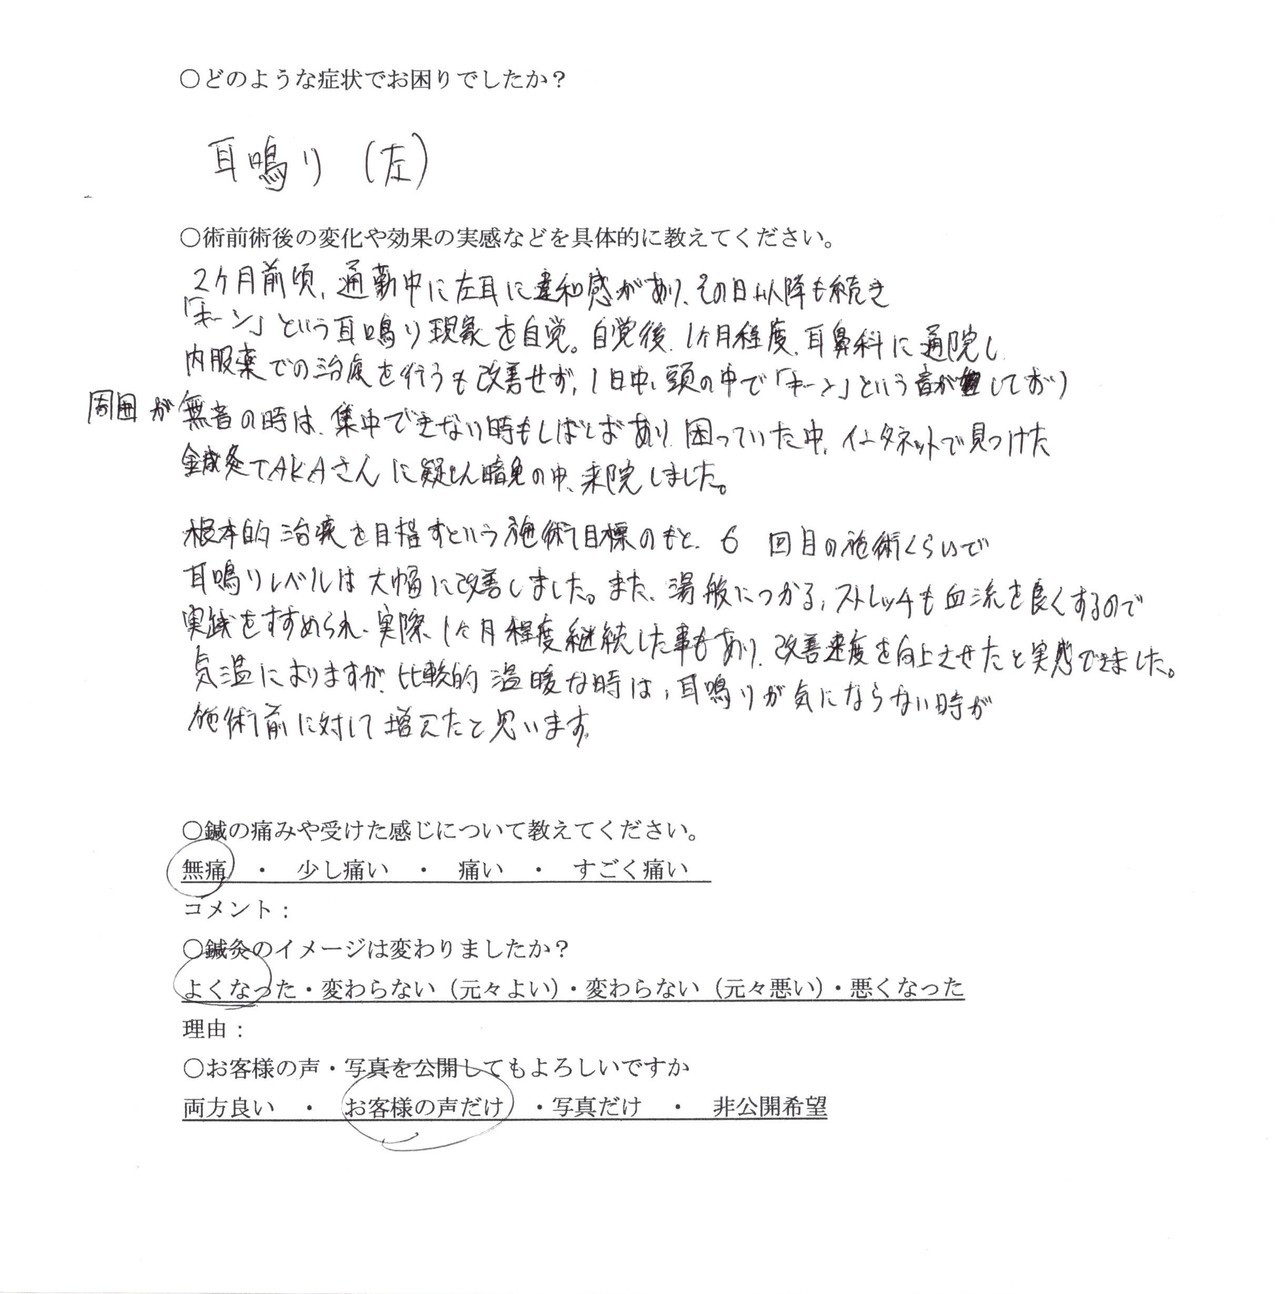 ○どのような症状でお困りでしたか？
耳鳴り （左）
○術前術後の変化や効果の実感などを具体的に教えてください。
2ヶ月前頃、通勤中に左耳に違和感があり、その日以降も続き
「キーン」という耳鳴り現象を自覚。自覚後、1ヶ月程度、耳鼻科に通院し
内服薬での治療を行うも改善せず、1日中、頭の中で「キーン」という音がしており
周囲が無音の時は、集中できない時もしばしばあり、困っていた中、インタネットで見つけた
鍼灸TAKAさんに疑心暗鬼の中、来院しました。
根本的治療を目指すという施術目標のもと、6 回目の施術くらいで
耳鳴りレベルは大幅に改善しました。また、湯船につかる、ストレッチも血流を良くするので
実践をすすめられ、実際、1ヶ月程度継続した事もあり、改善速度を向上させたと実感できました。
気温によりますが、比較的温暖な時は、耳鳴りが気にならない時が
施術前に対して増えたと思います。
○鍼の痛みや受けた感じについて教えてください。
無痛 ・ 少し痛い ・ 痛い ・ すごく痛い
コメント：
○鍼灸のイメージは変わりましたか？
よくなった・変わらない（元々よい）・変わらない（元々悪い）・悪くなった
理由：
○お客様の声・写真を公開してもよろしいですか
両方良い ・ お客様の声だけ ・写真だけ ・ 非公開希望